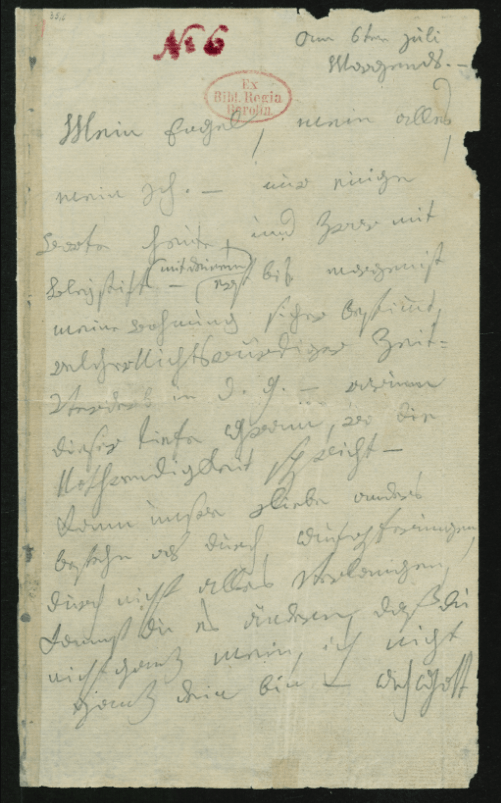 No 6
am 6ten juli
Morgends. –
Ex
Bibl. Regia
Berolin.
Mein Engel, mein alles,
mein Ich. – nur einige
Worte heute, und zwar mit
Bleystift – (mit deinem)
erst bis morgen ist
meine wohnung sicher bestimt,
welcher Nichtswürdiger Zeit-
Verderb in d. g. – warum
dieser tiefe Gram, wo die
Nothwendigkeit spricht –
Kann unsre Liebe anders
bestehn als durch Aufopferungen,
durch nicht alles verlangen,
kannst du es ändern, daß du
nicht ganz mein, ich nicht
ganz dein bin – Ach Gott